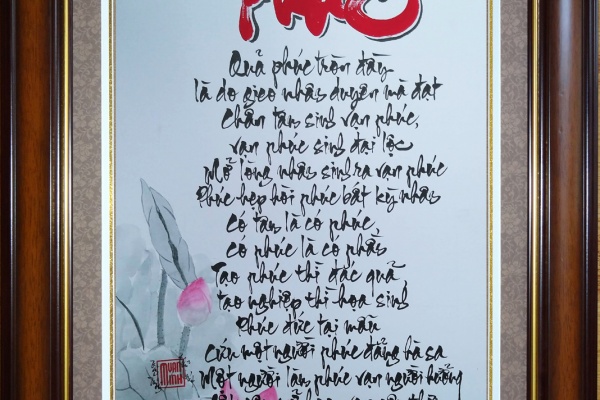 Phúc
Quả phúc tròn đầy
là do gieo nhân duyên mà đạt
Chân tâm sinh vạn phúc,
vạn phúc sinh đại lộc
Mở lòng nhân sinh ra vạn phúc
Phúc hẹp hòi phúc bất kỳ nhân
Có tâm là có phúc,
có phúc là có phần
Tạo phúc thì đắc quả
tạo nghiệp thì họa sinh
Phúc đức tại mẫu
Cứu một người phúc đẳng hà sa
Một người làm phúc vạn người hưởng